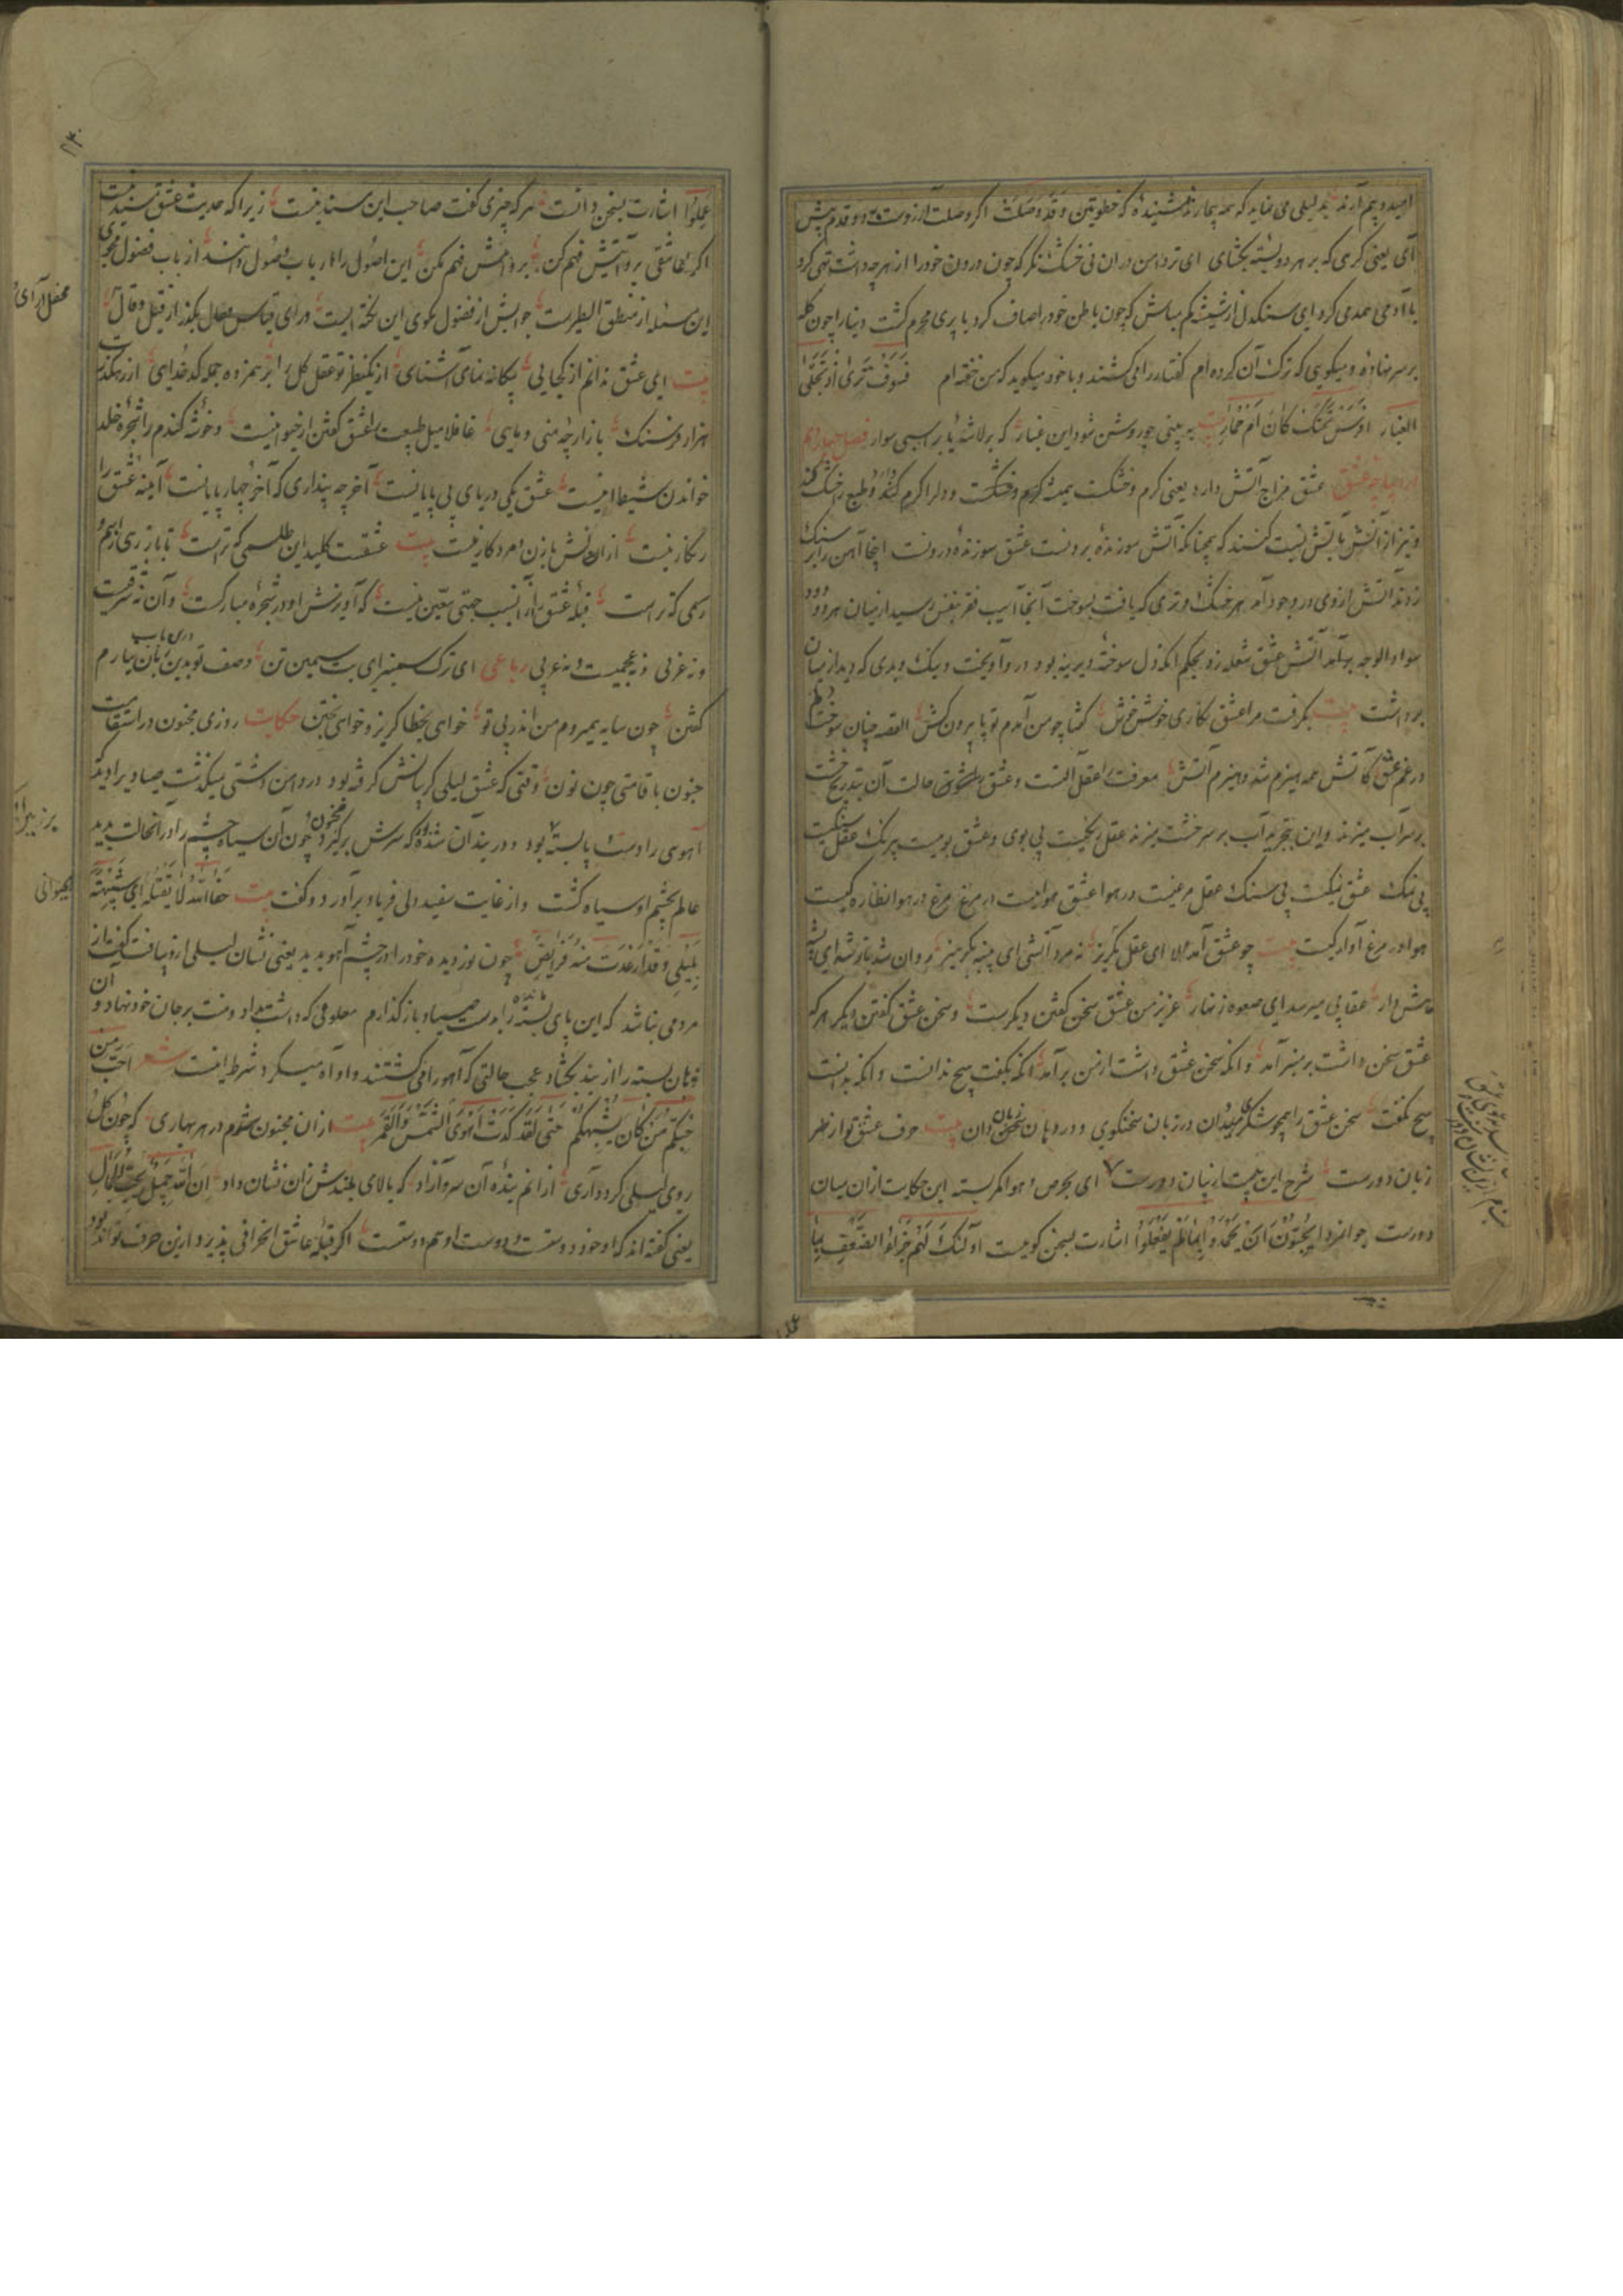 امید و بیم آرند بدلیلی می نماید که همه بیمار نشینیده که خطوتین و قد وصلت اگر وصلت آرزوست دو قدم پیش
آی یعنی کرمی که بر هر دو بسته بگشای ای تردامن دران نی خشک نگر که چون درون خود را از هرچه داشت تهی کرد
با آدمی همدمی کرد ای سنگدل از شیشه کم مباش که چون باطن خود را صاف کرد با پری محرم گشت دینار چون کله
بر سر نهاده و میگویی که ترک آن کرده ام گفتار را می کشند و با خود میگوید که من خفته ام فسوف تری اذ تجلی
الغبار افرس تحتک کان ام حمار بیت ببینی چو روشن شود این غبار که بر لاشه یا بر اسبی سوار فصل چهاردهم
عشق مزاج آتش دارد یعنی گرم و خشکست دل را گرم کند و طبع را خشک کند
و نیز از آتش بآتش نسبت کنند که همچنانکه آتش سوزنده برونست عشق سوزنده درونست اینجا آهن را بر سنک
زدند آتش از وی در وجود آمد هر خشک و تری که یافت بسوخت آنجا آسیب فقر بنفس رسید از میان هر دو دود
سواد الوجه برآمد آتش عشق شعله زد بحکم آنکه دل سوخته دیرینه بود در وآویخت و نیک و بدی که دید از میان
برداشت بیت بگرفت مرا عشق نگاری خوش خوش گفتا چو من آمدم تو پا بیرون کش القصه چنان سوخت دلم
در غم عشق کآتش همه هیزم شد و هیزم آتش معرفت عقل آلتست و عشق حالت آن بتدریج خشت
بر سر آب میزند و این بتجربه آب بر سر خشت میزند عقل رنگیست بی بوی و عشق بوییست بی رنگ عقل سنگیست
بی نمک عشق نمکیست بی سنگ عقل مرغیست در هوا عشق هواییست در مرغ مرغ در هوا نظاره گیست
هوا در مرغ آواره گیست بیت چو عشق آمد الا ای عقل بگریز نه مرد آتشی ای پنبه پرهیز روان شد باز شه ای پشه
هش دار عقابی میرسد ای صعوه زنهار عزیز من عشق سخن گفتن دیگرست و سخن عشق گفتن دیگر هر که
عشق سخن داشت بر منبر آمد و آنکه سخن عشق داشت از من برآمد آنکه بگفت هیچ ندانست و آنکه بدانست
هیچ نگفت سخن عشق را همچو شکر میدان در زبان سخنگوی و در دهان سخن دان بیت حرف عشق تو از نظر
زبان دورست شرح این بیت از بیان دورست ای بحرص و هوا کمر بسته این حکایت از ان میان
دورست جوانمردا یحبون ان یحمدوا بما لم یفعلوا اشارت بسخن گویست اولئک لهم جزاء الضعف بما
عملوا اشارت بسخن دانست هر که چیزی گفت صاحب این سند نیست زیرا که حدیث عشق مسند نیست
اگر عاشقی برو آتش فهم کن برو آتش فهم مکن این اصول را ارباب وصول دانند از باب فضول مجوی
این مسئله از منطق الطیرست جوابش از فضول مگوی این نکته ایست ورای قیاس عقل بگذر از قیل و قال
بیت ای عشق ندانم از کجایی بیگانه نمای آشنایی از یکنظر تو عقل کل را بر همزده جمله کدخدایی از رهگذر
هزار فرسنگ بازارچه منی و مایی غافلا میل طبیعت را عشق گفتن از حیوانیست و خوشه گندم را شجره خلد
خواندن شیطانیست عشق یکی دریای بی پایانست آخر چه پنداری که آخر چهارپایانست آینه عشق را
زنگار نیست از ان نقش با زن و مرد کار نیست بیت عشقست کلید این طلسمی که تراست تا باز رهی از اسم و
رسمی که تراست قبله عشق را نسبت جهتی معین نیست که آویزش او در شجره مبارکست و آن نه شرقیست
و نه غربی نه عجمیست و نه عربی رباعی ای ترک ستیزه ای بت سیمین تن وصف تو بدین زبان نیارم
گفتن چون سایه همیروم من اندر پی تو خواهی بخطا گریز و خواهی بختن حکایت روزی مجنون در استقامت
جنون با قامتی چون نون وقتی که عشق لیلی گریبانش گرفته بود در دامن دشتی میگذشت صیاد برا دید
آهوی را دست و پا بسته بود و در بند آن شده که سرش برگیرد مجنون چون آن سیاه چشم را در آن حالت بدید
عالم بچشم او سیاه گشت و از غایت سفید دلی فریاد برآورد و گفت بیت خف الله لا تقتله ای شبیهة
بلیلی و قد ارعدت منه فرایض چون نور دیده خود را در چشم آهو بدید یعنی نشان لیلی ازو یافت گفت از
مردمی نباشد که این پای بسته را بدست صیاد باز گذارم معلومی که داشت بداد و منت بر جان خود نهاد و آن
زبان بسته را از بند بگشاد عجب حالتی که آهو را می کشتند و او آه میکرد شرط اینست شعر احب من
حبکم من کان یشبهکم حتی لقد کدت اهوی الشمس و القمر بیت از ان مجنون شوم در هر بهاری که چون گل
روی لیلی کرد آری از انم بنده آن سرو آزاد که بالای بلندش زان نشان داد ان الله جمیل یحب الجمال
یعنی گفته اند که او خود دوست و دوست او هم دوست اگر قبله عاشق انحرافی پذیرد از ین حرف تواند بود
محفل آرای